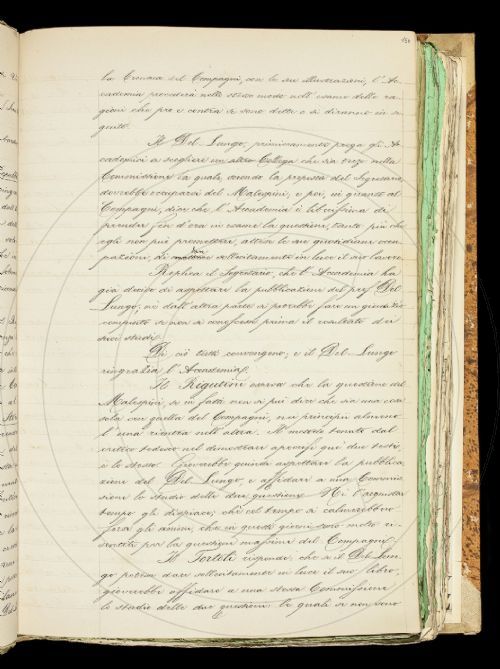 la Cronaca del Compagni, con le sue illustrazioni, l'Ac-
cademia procederà nello stesso modo nell'esame delle ra-
gioni che pro e contra si sono dette o si diranno in se-
guito.
Il Del Lungo, primieramente prega gli A-
cademici a scegliere un altro Collega che sia vece nella
Commissione la quale, secondo la proposta del Segretario,
dovrebbe occuparsi del Malespini; e poi, in quanto al
Compagni, dice che l'Accademia è liberissima di
prender fin d'ora in esame la questione, tanto più che
egli non può promettere, attese le sue quotidiane occu-
pazioni, di sollecitamente in luce il suo lavoro.
Replica il Segretario, che l'Accademia ha
già deciso di aspettare la pubblicazione del prof. Del
Lungo; nè dall'altra parte si potrebbe fare un giudizio
compiuto se non si conoscesse prima il resultato dei
suoi studi.
Di ciò tutti convengono; e il Del Lungo
ringrazia l'Accademia.
Il Rigutini osserva che la questione del
Malespini, se in fatto non si può dire che sia una cosa
sola con quella del Compagni, ne' principii almeno
l'una rientra nell'altra. Il metodo tenuto dal
critico tedesco nel dimostrare apocrifi que' due testi,
è lo stesso. Gioverebbe quindi aspettare la pubblica-
zione del Del Lungo, e affidare a una Commis-
sione lo studio delle due questioni. Nè l'acquistar
tempo gli dispiace; chè col tempo si calmerebbero
forse gli animi, che in questi giorni sono molto ri-
scaldati per la questione massime del Compagni.
Il Tortoli risponde, che se il Del Lun-
go potesse dare sollecitamente in luce il suo libro,
gioverebbe affidare a una stessa Commissione
lo studio delle due questioni le quali se non sono